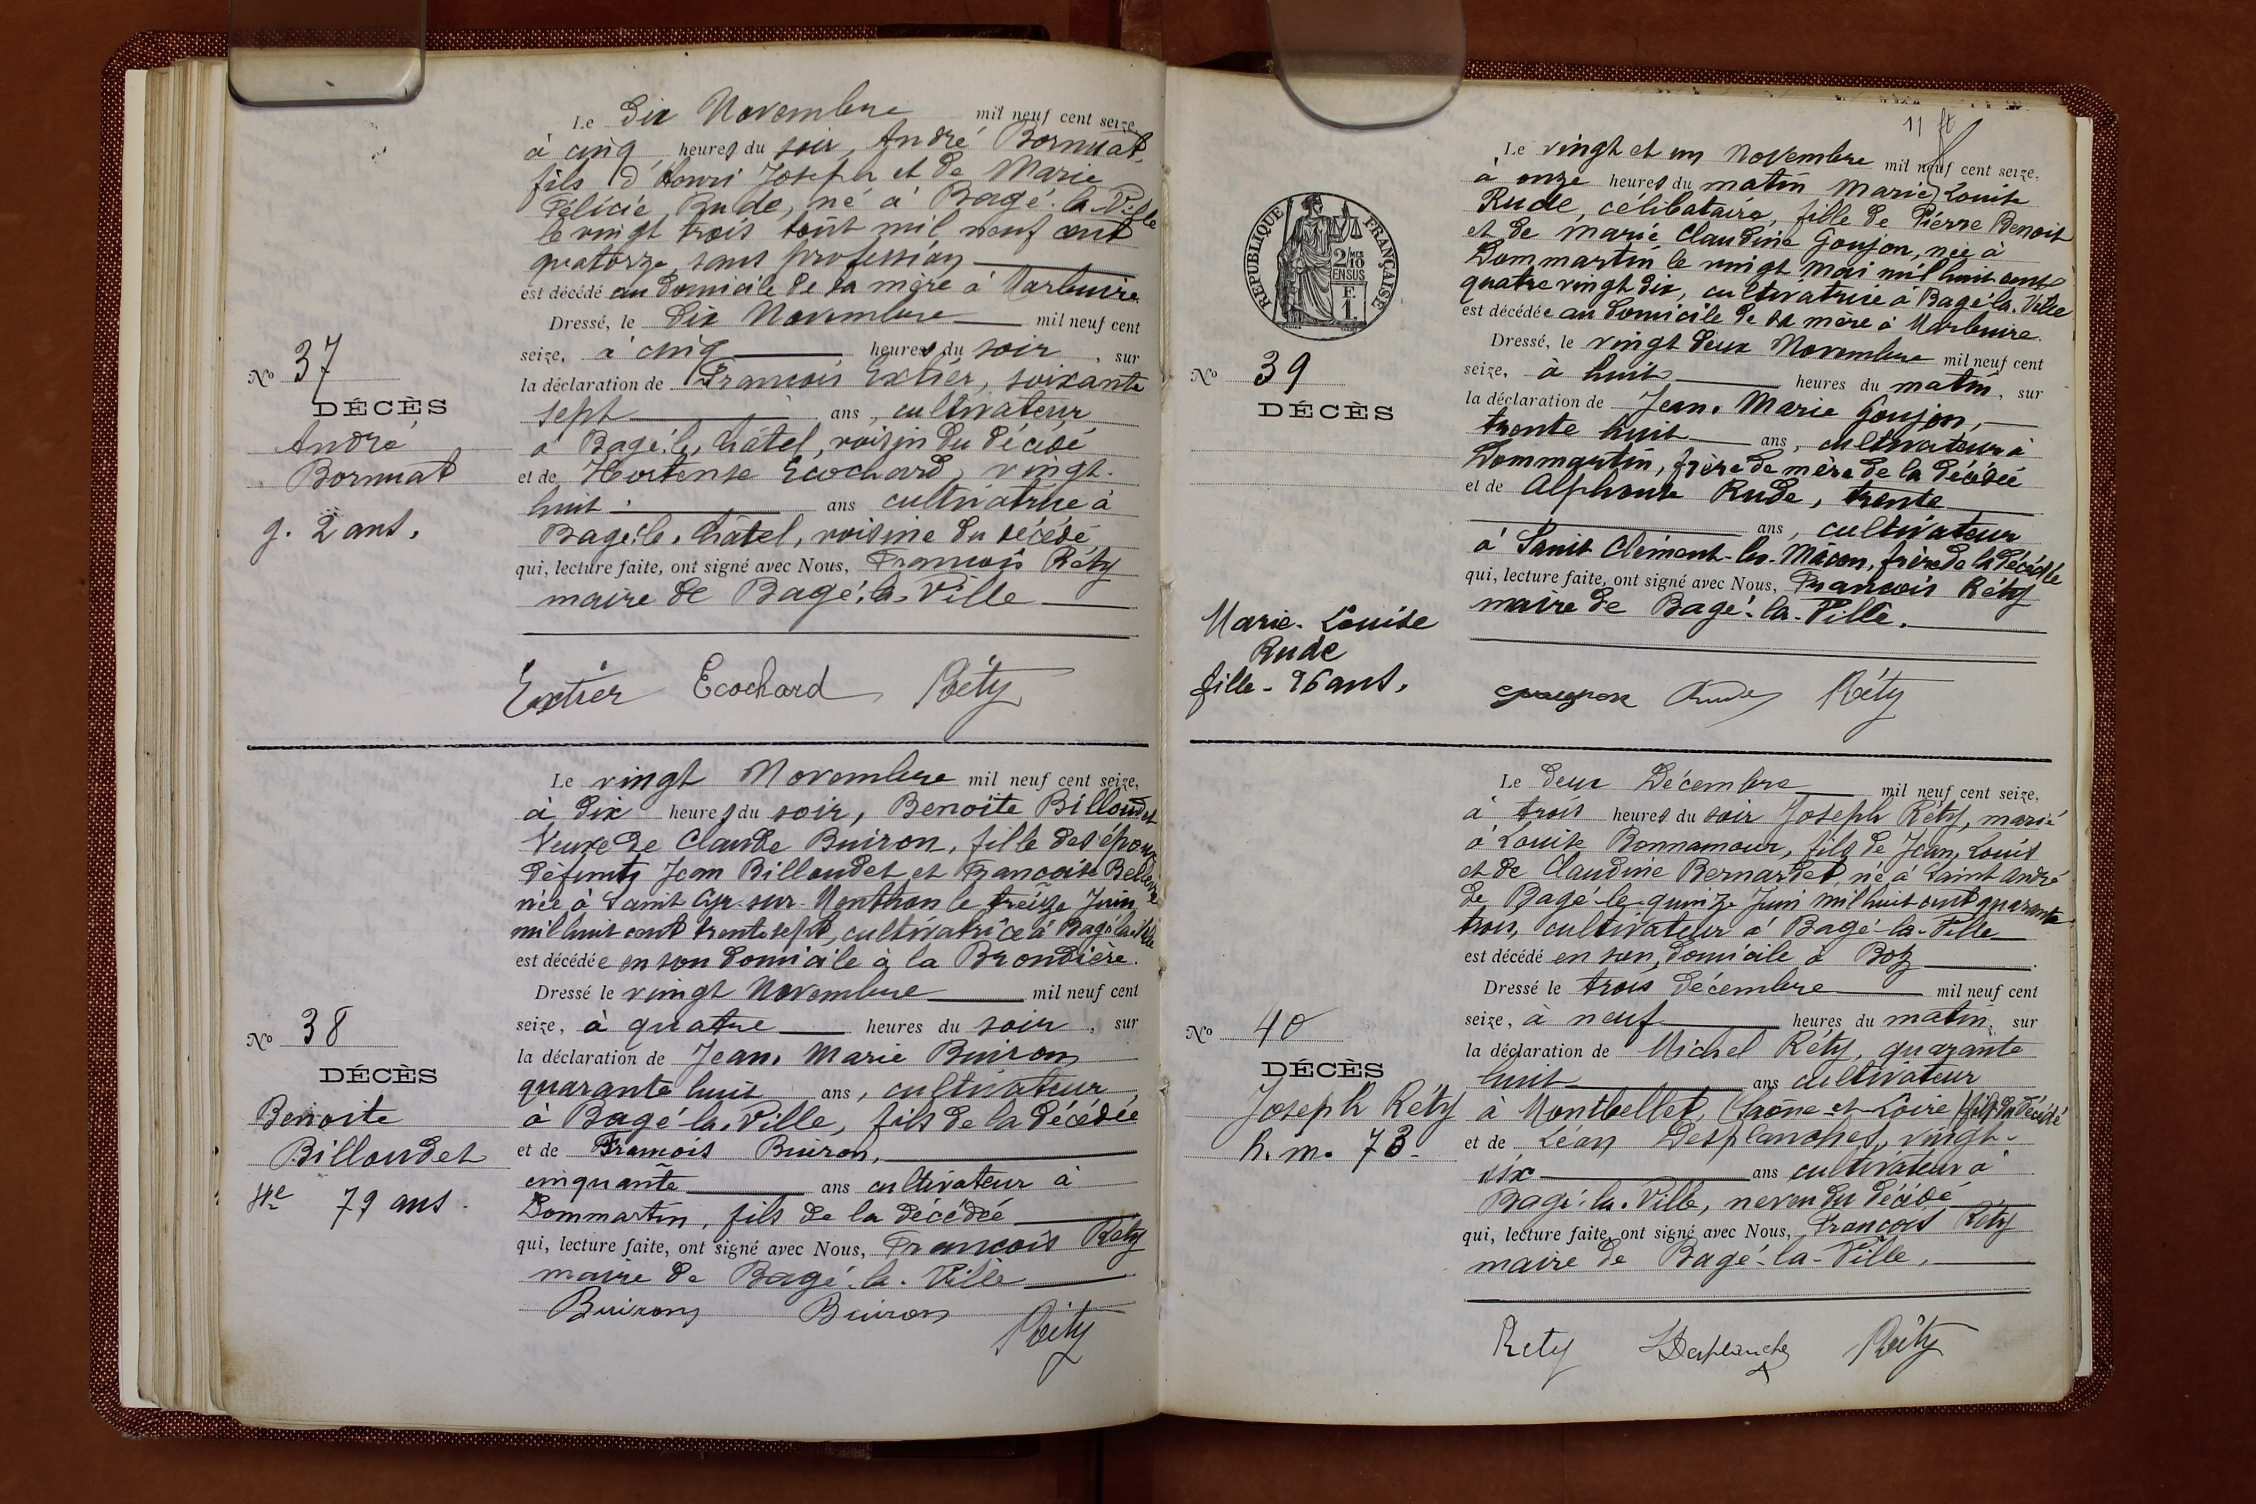 Le dix Novembre mil neuf cent seize
à cinq heures du soir, André Bornuat,
fils d'Henri Joseph et de Marie
Félicie Rude, né à Bagé-la-Ville
le vingt trois août mil neuf cent
quatorze sans profession
est décédé au domicile de sa mère à Marbuire.
Dressé, le dix Novembre mil neuf cent
seize, à cinq heures du soir, sur
la déclaration de François Extier, soixante
sept ans, cultivateur
à Bagé-le-Châtel, voisin du décédé
et de Hortense Ecochard, vingt-
huit ans cultivatrice à
Bagé-le-Châtel, voisine du décédé
qui, lecture faite, ont signé avec Nous, François Réty
maire de Bagé-la-Ville
Extier Ecochard Réty
No 37
DÉCÈS
André
Bornuat
g. 2 ans.
Le vingt Novembre mil neuf cent seize,
à dix heures du soir, Benoite Billoudet
Veuve de Claude Buiron, fille des époux
défunts Jean Billoudet et Françoise
née à Saint Cyr-sur-Menthon le treize Juin
mil huit cent trente sept, cultivatrice à Bagé-la-Ville
est décédée en son domicile à la Brondière.
Dressé le vingt Novembre mil neuf cent
seize, à quatre heures du soir, sur
la déclaration de Jean-Marie Buiron
quarante huit ans, cultivateur
à Bagé-la-Ville, fils de la décédée
et de François Buiron,
cinquante ans cultivateur à
Dommartin, fils de la décédée
qui, lecture faite, ont signé avec Nous, François Réty
maire de Bagé-la-Ville
Buiron Buiron Réty
No 38
DÉCÈS
Benoite
Billoudet
Ve 79 ans.
11 ft
Le vingt et un Novembre mil neuf cent seize.
à onze heures du matin Marie Louise
Rude, célibataire, fille de Pierre Benoit
et de Marie Claudine Goujon, née à
Dommartin le vingt mai mil huit cent
quatre vingt dix, cultivatrice à Bagé-la-Ville
est décédée au domicile de sa mère à Marbuire.
Dressé, le vingt deux Novembre mil neuf cent
seize, à huit heures du matin, sur
la déclaration de Jean-Marie Goujon,
trente huit ans, cultivateur à
Dommartin, frère de mère de la décédée
et de Alphonse Rude, trente
ans, cultivateur
à Saint Clément-les-Mâcon, frère de la décédée
qui, lecture faite, ont signé avec Nous, François Réty
maire de Bagé-la-Ville.
Rude Réty
RÉPUBLIQUE FRANÇAISE
2/10 EN SUS
F.
1.
No 39
DÉCÈS
Marie-Louise
Rude
fille - 26 ans.
Le deux Décembre mil neuf cent seize,
à trois heures du soir Joseph Réty, marié
à Louise Bonnamour, fils de Jean-Louis
et de Claudine Bernardet, né à Saint André
de Bagé le quinze Juin mil huit cent quarante
trois, cultivateur à Bagé-la-Ville
est décédé en son domicile à Boz
Dressé le trois Décembre mil neuf cent
seize, à neuf heures du matin, sur
la déclaration de Michel Réty, quarante
huit ans cultivateur
à Montbellet (Saône-et-Loire) fils du décédé
et de Léon Desplanches, vingt-
six ans cultivateur à
Bagé-la-Ville, neveu du décédé
qui, lecture faite, ont signé avec Nous, François Réty
maire de Bagé-la-Ville.
Rety LDesplanche Réty
No 40
DÉCÈS
Joseph Réty
h. m. 73